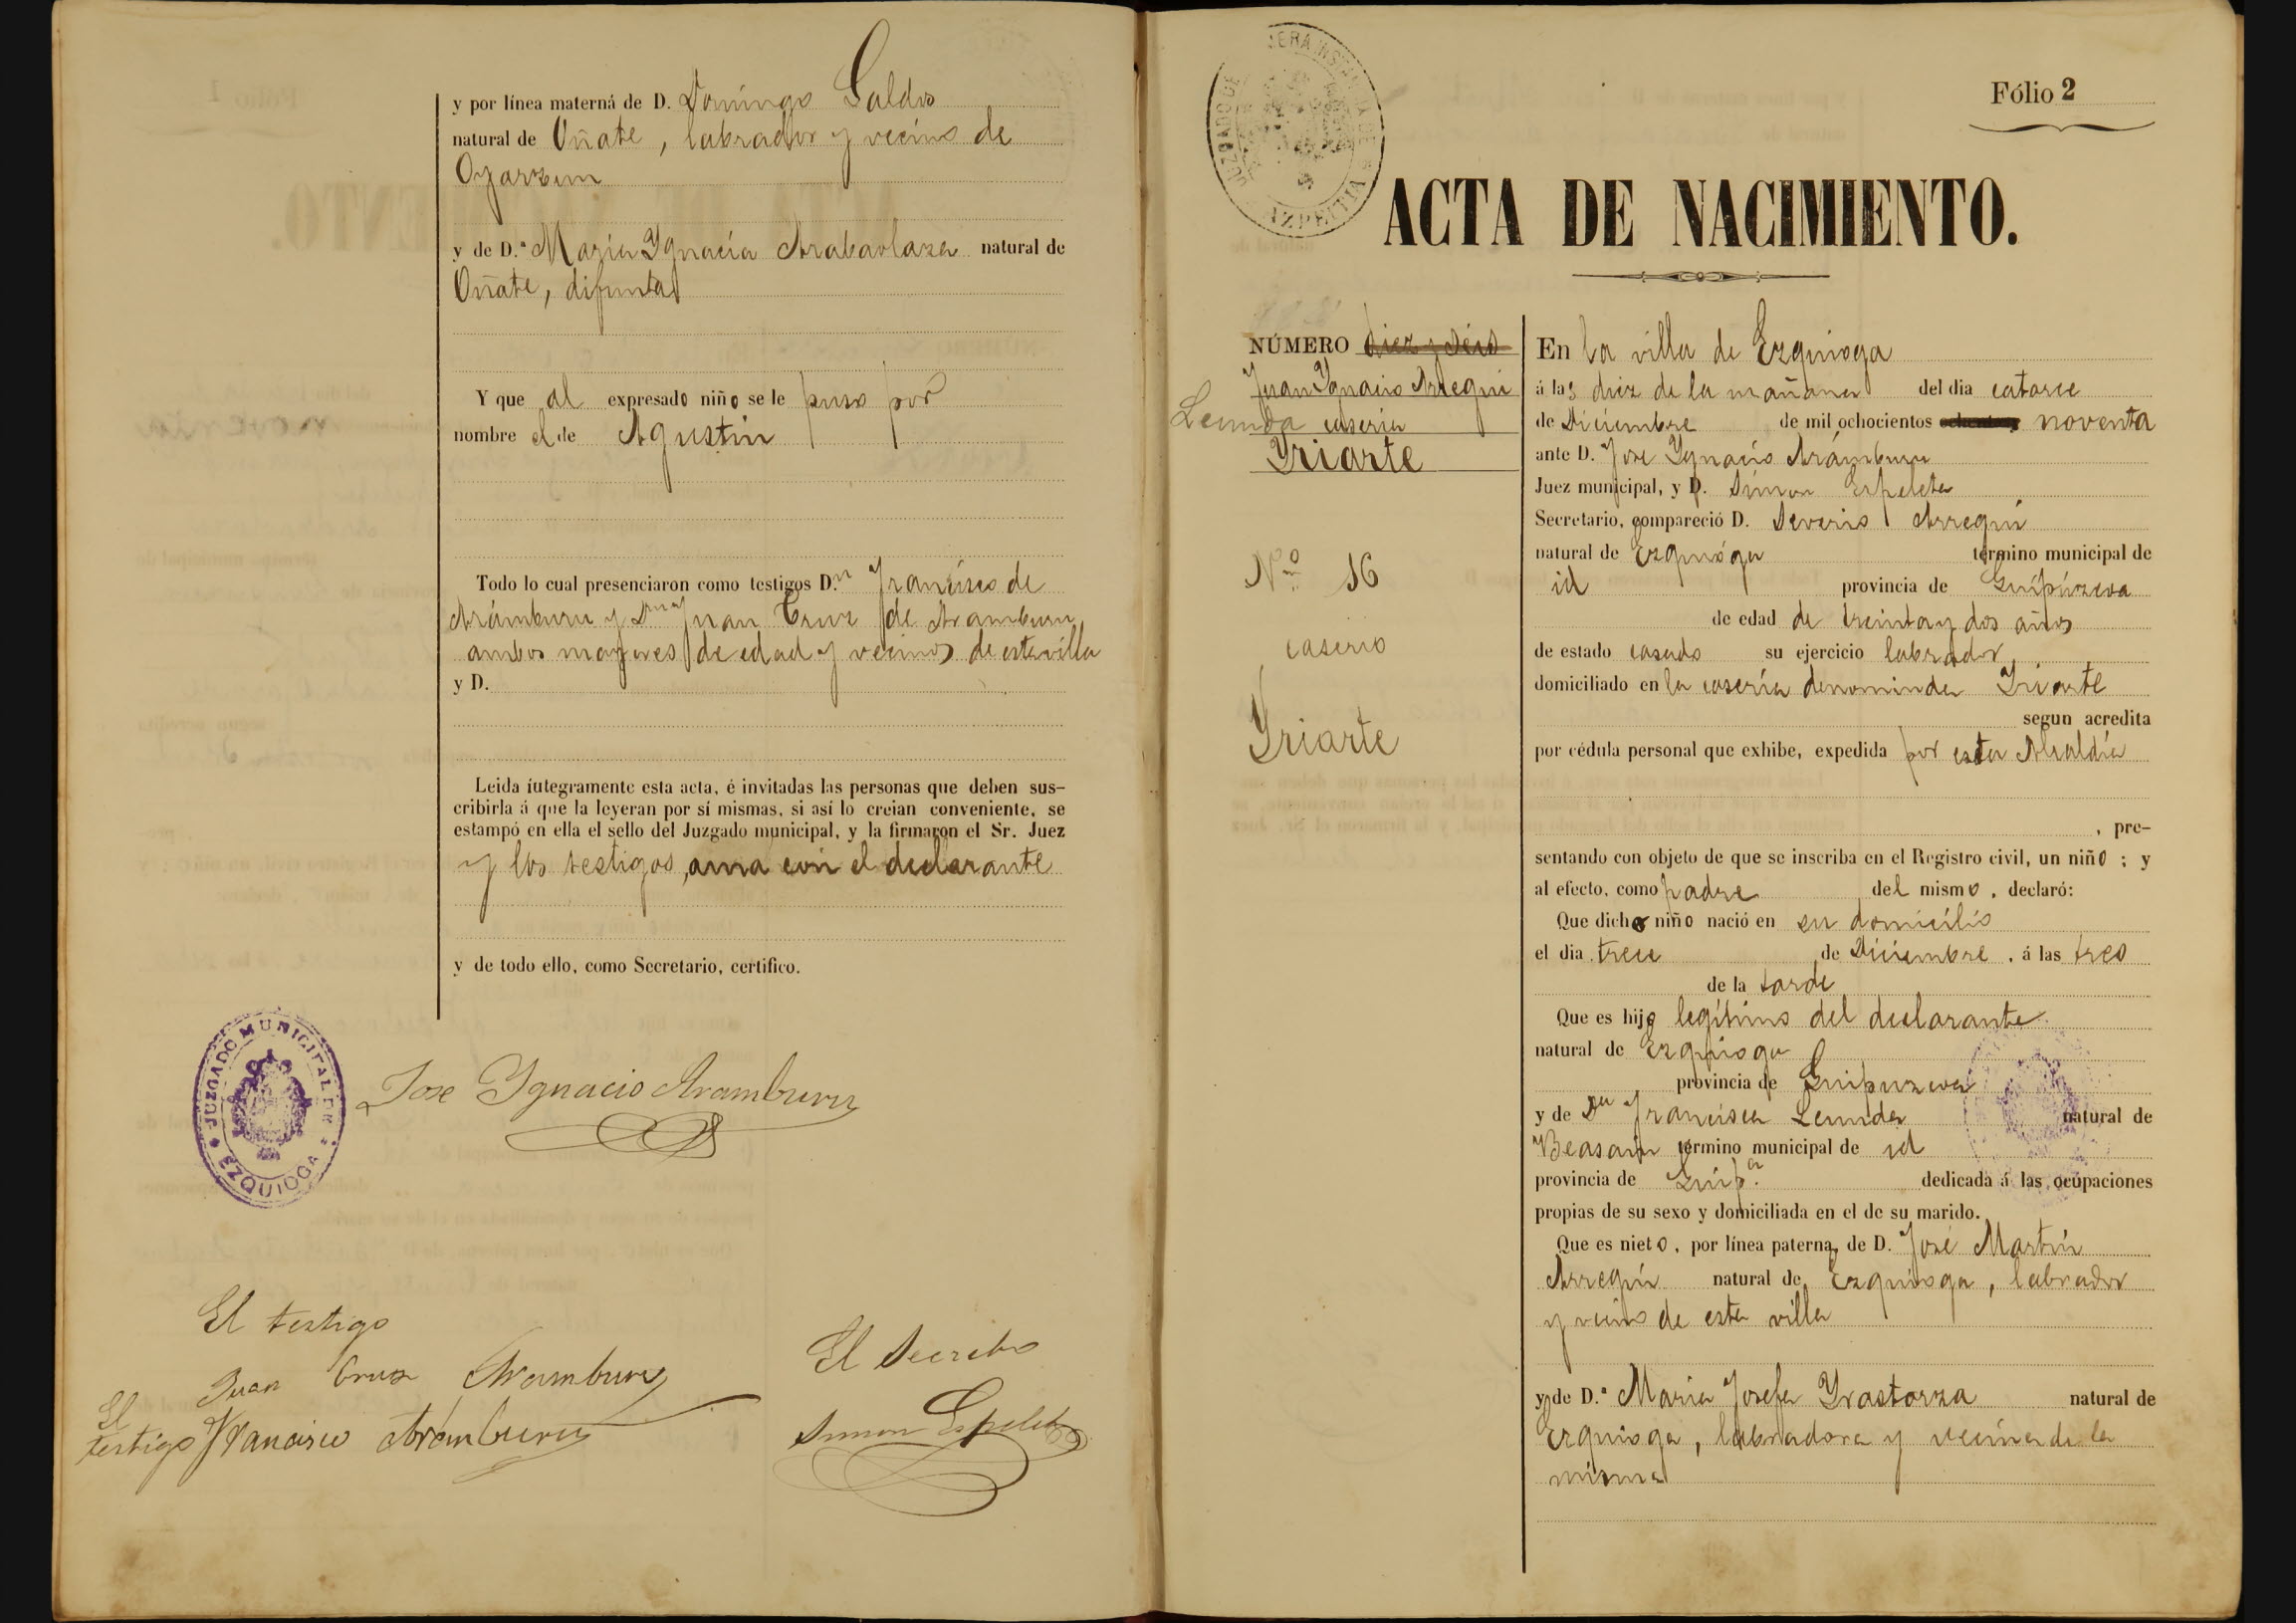 y por línea materná de D. Domingo Galdos
natural de Oñate, labrador y vecino de
Oyarzun
y de D.ª Maria Ygnacia Arabaolaza natural de
Oñate, difunta
Y que al expresado niño se le puso por
nombre el de Agustin
Todo lo cual presenciaron como testigos D.n Francisco de
Arámburu y Dn Juan Cruz de Aramburu
ambos mayores de edad y vecinos de esta villa
y D.
Leida íntegramente esta acta, é invitadas las personas que deben sus-
cribirla á que la leyeran por sí mismas, si así lo creian conveniente, se
estampó en ella el sello del Juzgado municipal, y la firmaron el Sr. Juez
y los testigos, con el declarante
y de todo ello, como Secretario, certifico.
JUZGADO MUNICIPAL DE EZQUIOGA
Jose Ygnacio Aramburu
El testigo
Juan Cruz Aramburu
El
testigo Francisco Arámburu
El Secreto
Simon Espeleta
JUZGADO DE PRIMERA INSTANCIA DE AZPEITIA
Fólio 2
ACTA DE NACIMIENTO.
NÚMERO diez y séis
Juan Ygnacio Arregui
Lecunda caseria
Yriarte
No 16
caserio
Yriarte
En la villa de Ezquioga
á las diez de la mañana del dia catorce
de Diciembre de mil ochocientos noventa
ante D. Jose Ygnacio Arámburu
Juez municipal, y D. Simon Espeleta
Secretario, compareció D. Severio Arregui
natural de Ezquióga término municipal de
id provincia de Guipúzcoa
de edad de treinta y dos años
de estado casado su ejercicio labrador
domiciliado en la casería denominda Yriarte
segun acredita
por cédula personal que exhibe, expedida por esta Alcaldía
, pre-
sentando con objeto de que se inscriba en el Registro civil, un niño ; y
al efecto, como padre del mismo, declaró:
Que dicho niño nació en su domicilio
el dia trece de Diciembre, á las tres
de la tarde
Que es hijo legítimo del declarante
natural de Ezquioga
provincia de Guipuzcoa
y de Da Francisca Lecunda natural de
Beasain término municipal de id
provincia de Guip.a dedicada á las ocupaciones
propias de su sexo y domiciliada en el de su marido.
Que es nieto, por línea paterna, de D. José Martín
Arregui natural de Ezquioga, labrador
y vecino de esta villa
y de D.ª Maria Josefa Yrastorza natural de
Ezquioga, labradora y vecina de la
misma